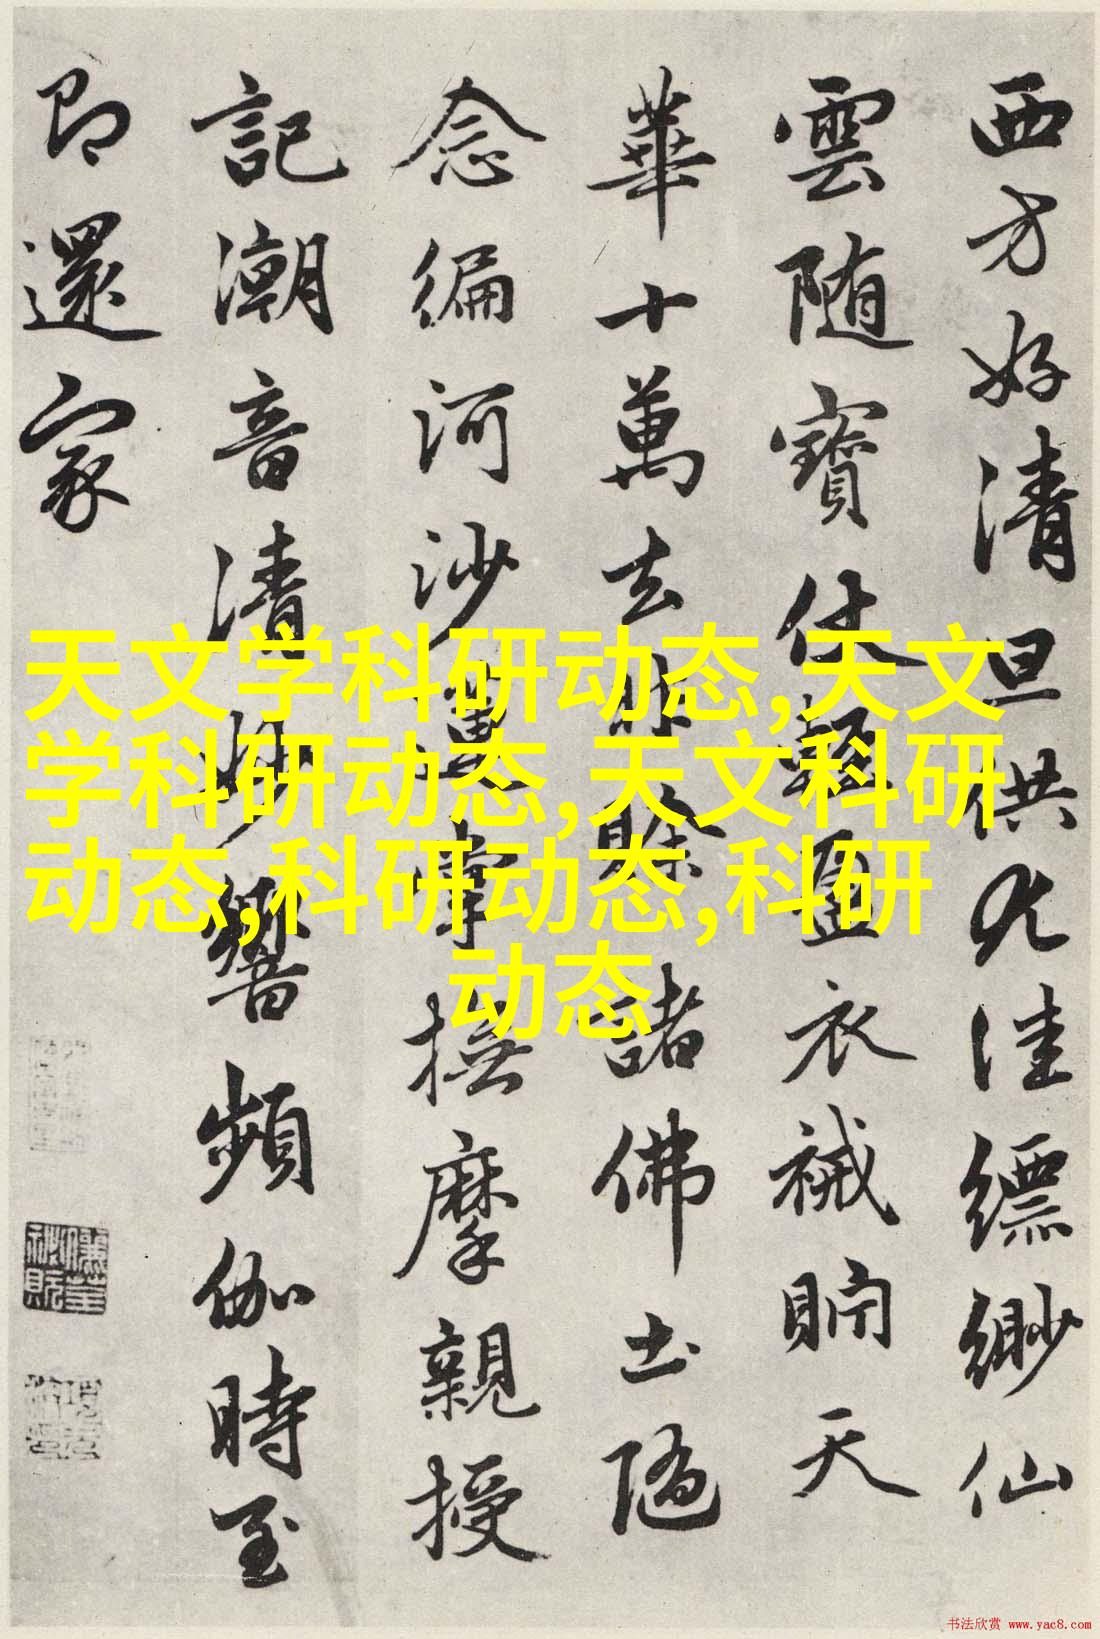 西方好清旦供尤佳縹緲仙
雲随寶仗輕盈衣裓貯天
華十萬去非賒諸佛土隨
念編河沙異掌撫摩親授
記潮音清妙響頻伽時至
即還家
天文学科研动态,天文
学科研动态,天文科研
动态,科研动态,科研
动态
书法欣赏 www.yac8.com